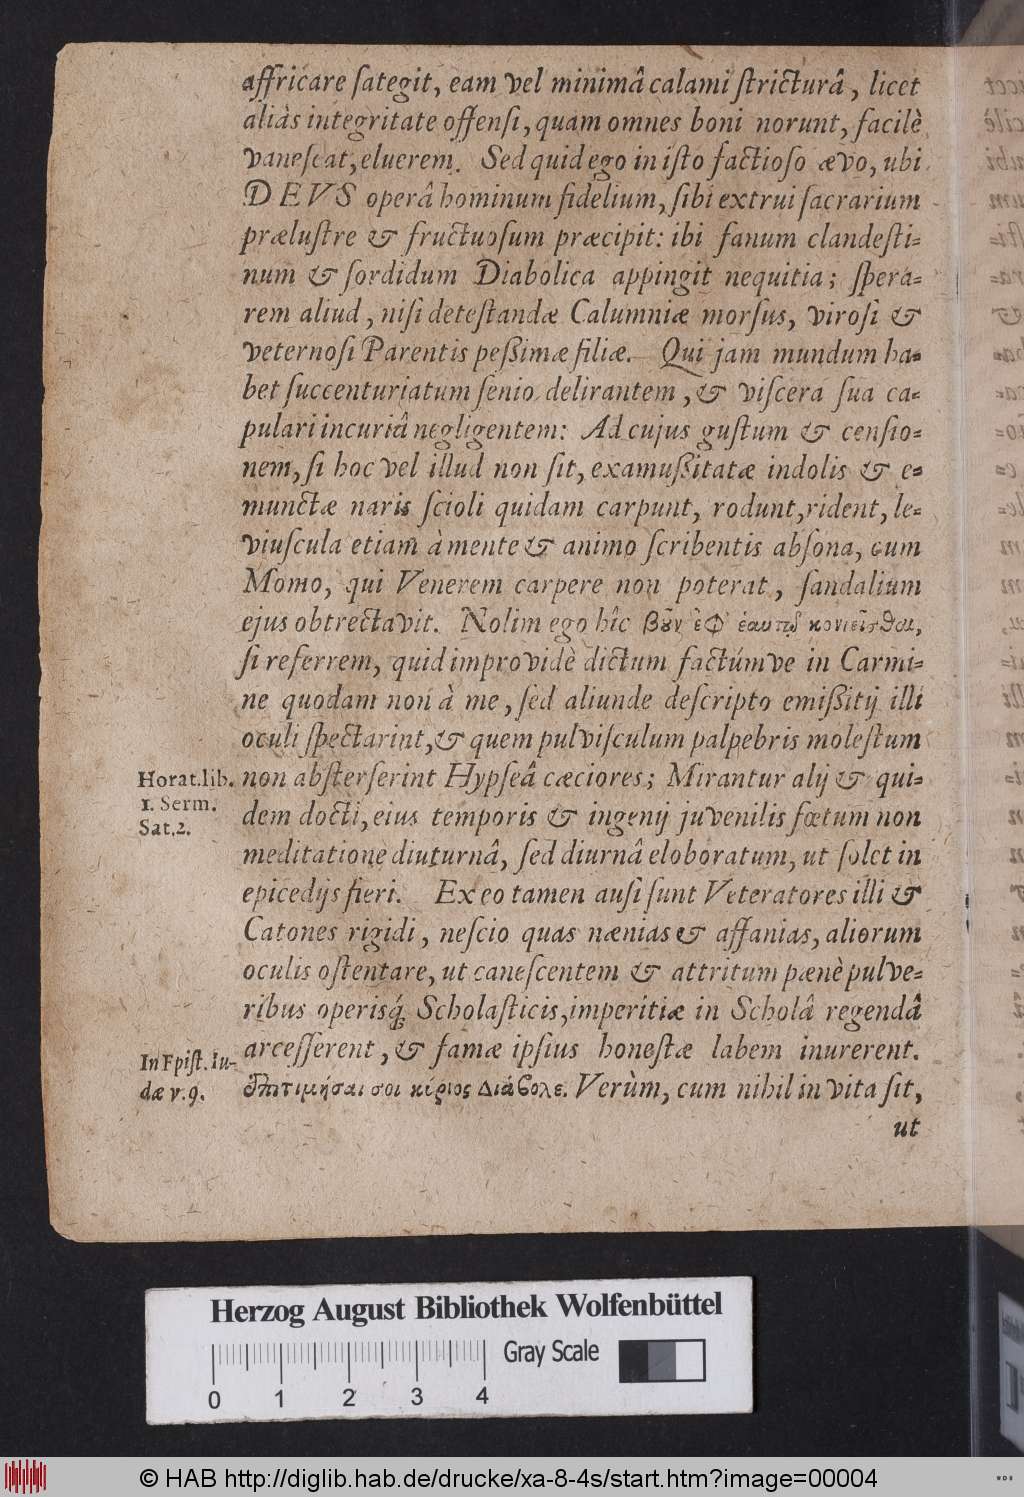 affricare ſategit, eam vel minimâ calami ſtricturâ, licet
aliàs integritate offenſi, quam omnes boni norunt, facilè
vaneſcat, eluerem. Sed quid ego in iſto factioſo ævo, ubi
DEVS operâ hominum fidelium, ſibi extrui ſacrarium
præluſtre & fructuoſum præcipit: ibi fanum clandeſti-
num & ſordidum Diabolica appingit nequitia; ſpera-
rem aliud, niſi deteſtandæ Calumniæ morſus, viroſi &
veternoſi Parentis peßimæ filiæ. Qui jam mundum ha-
bet ſuccenturiatum ſenio delirantem, & viſcera ſua ca-
pulari incuriâ negligentem: Ad cujus guſtum & cenſio-
nem, ſi hoc vel illud non ſit, examußitatæ indolis & e-
munctæ naris ſcioli quidam carpunt, rodunt, rident, le-
viuſcula etiam à mente & animo ſcribentis abſona, cum
Momo, qui Venerem carpere non poterat, ſandalium
ejus obtrectavit. Nolim ego hîc βοῦν ἐφ' ἑαυτῷ κονιεῖσθαι,
ſi referrem, quid improvidè dictum factúmve in Carmi-
ne quodam non à me, ſed aliunde deſcripto emißitij illi
oculi ſpectarint, & quem pulviſculum palpebris moleſtum
Horat. lib. non abſterſerint Hypſeâ cæciores; Mirantur alij & qui-
1. Serm. dem docti, eius temporis & ingenij juvenilis fœtum non
Sat. 2. meditatione diuturnâ, ſed diurnâ eloboratum, ut ſolet in
epicedijs fieri. Ex eo tamen auſi ſunt Veteratores illi &
Catones rigidi, neſcio quas nænias & affanias, aliorum
oculis oſtentare, ut caneſcentem & attritum pænè pulve-
ribus operisq́; Scholaſticis, imperitiæ in Scholâ regendâ
In Epiſt. Iu- arceſſerent, & famæ ipſius honeſtæ labem inurerent.
dæ v. 9. ἐπιτιμήσαι σοι κύριος Διάβολε. Verùm, cum nihil in vita ſit,
ut
Herzog August Bibliothek Wolfenbüttel
Gray Scale
0 1 2 3 4
© HAB http://diglib.hab.de/drucke/xa-8-4s/start.htm?image=00004